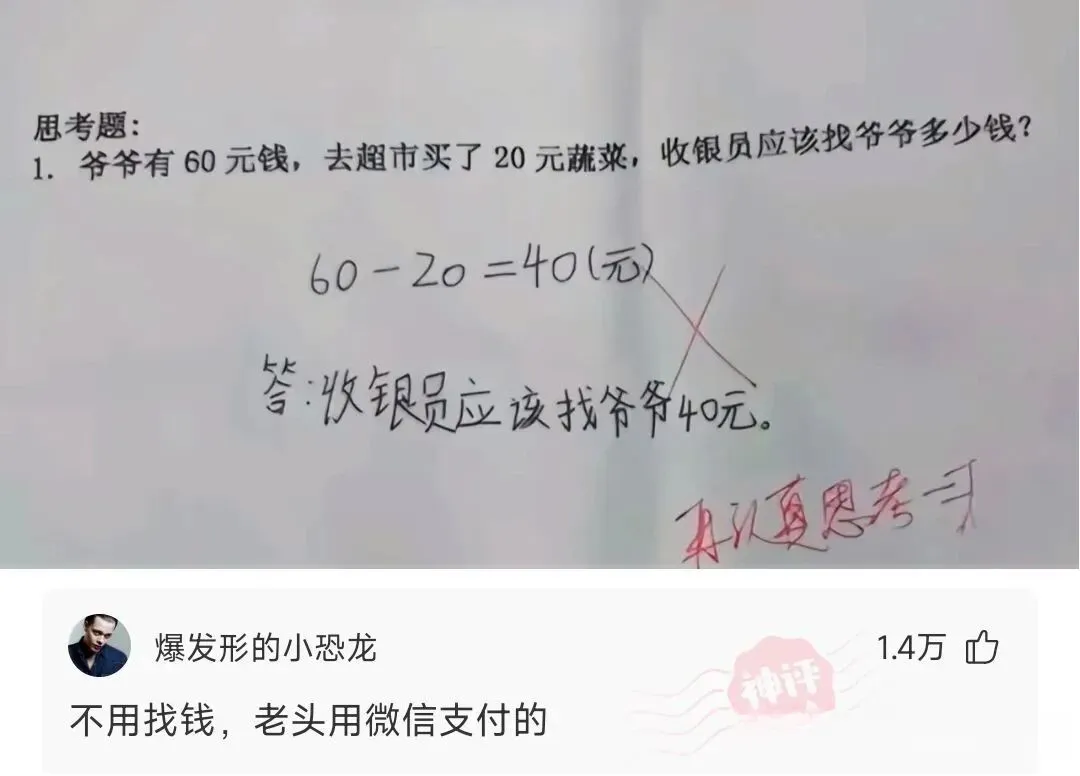 思考题：
1. 爷爷有 60 元钱，去超市买了 20 元蔬菜，收银员应该找爷爷多少钱？
60-20=40(元)
答：收银员应该找爷爷40元。
再认真思考一下
爆发形的小恐龙
1.4万
神评
不用找钱，老头用微信支付的